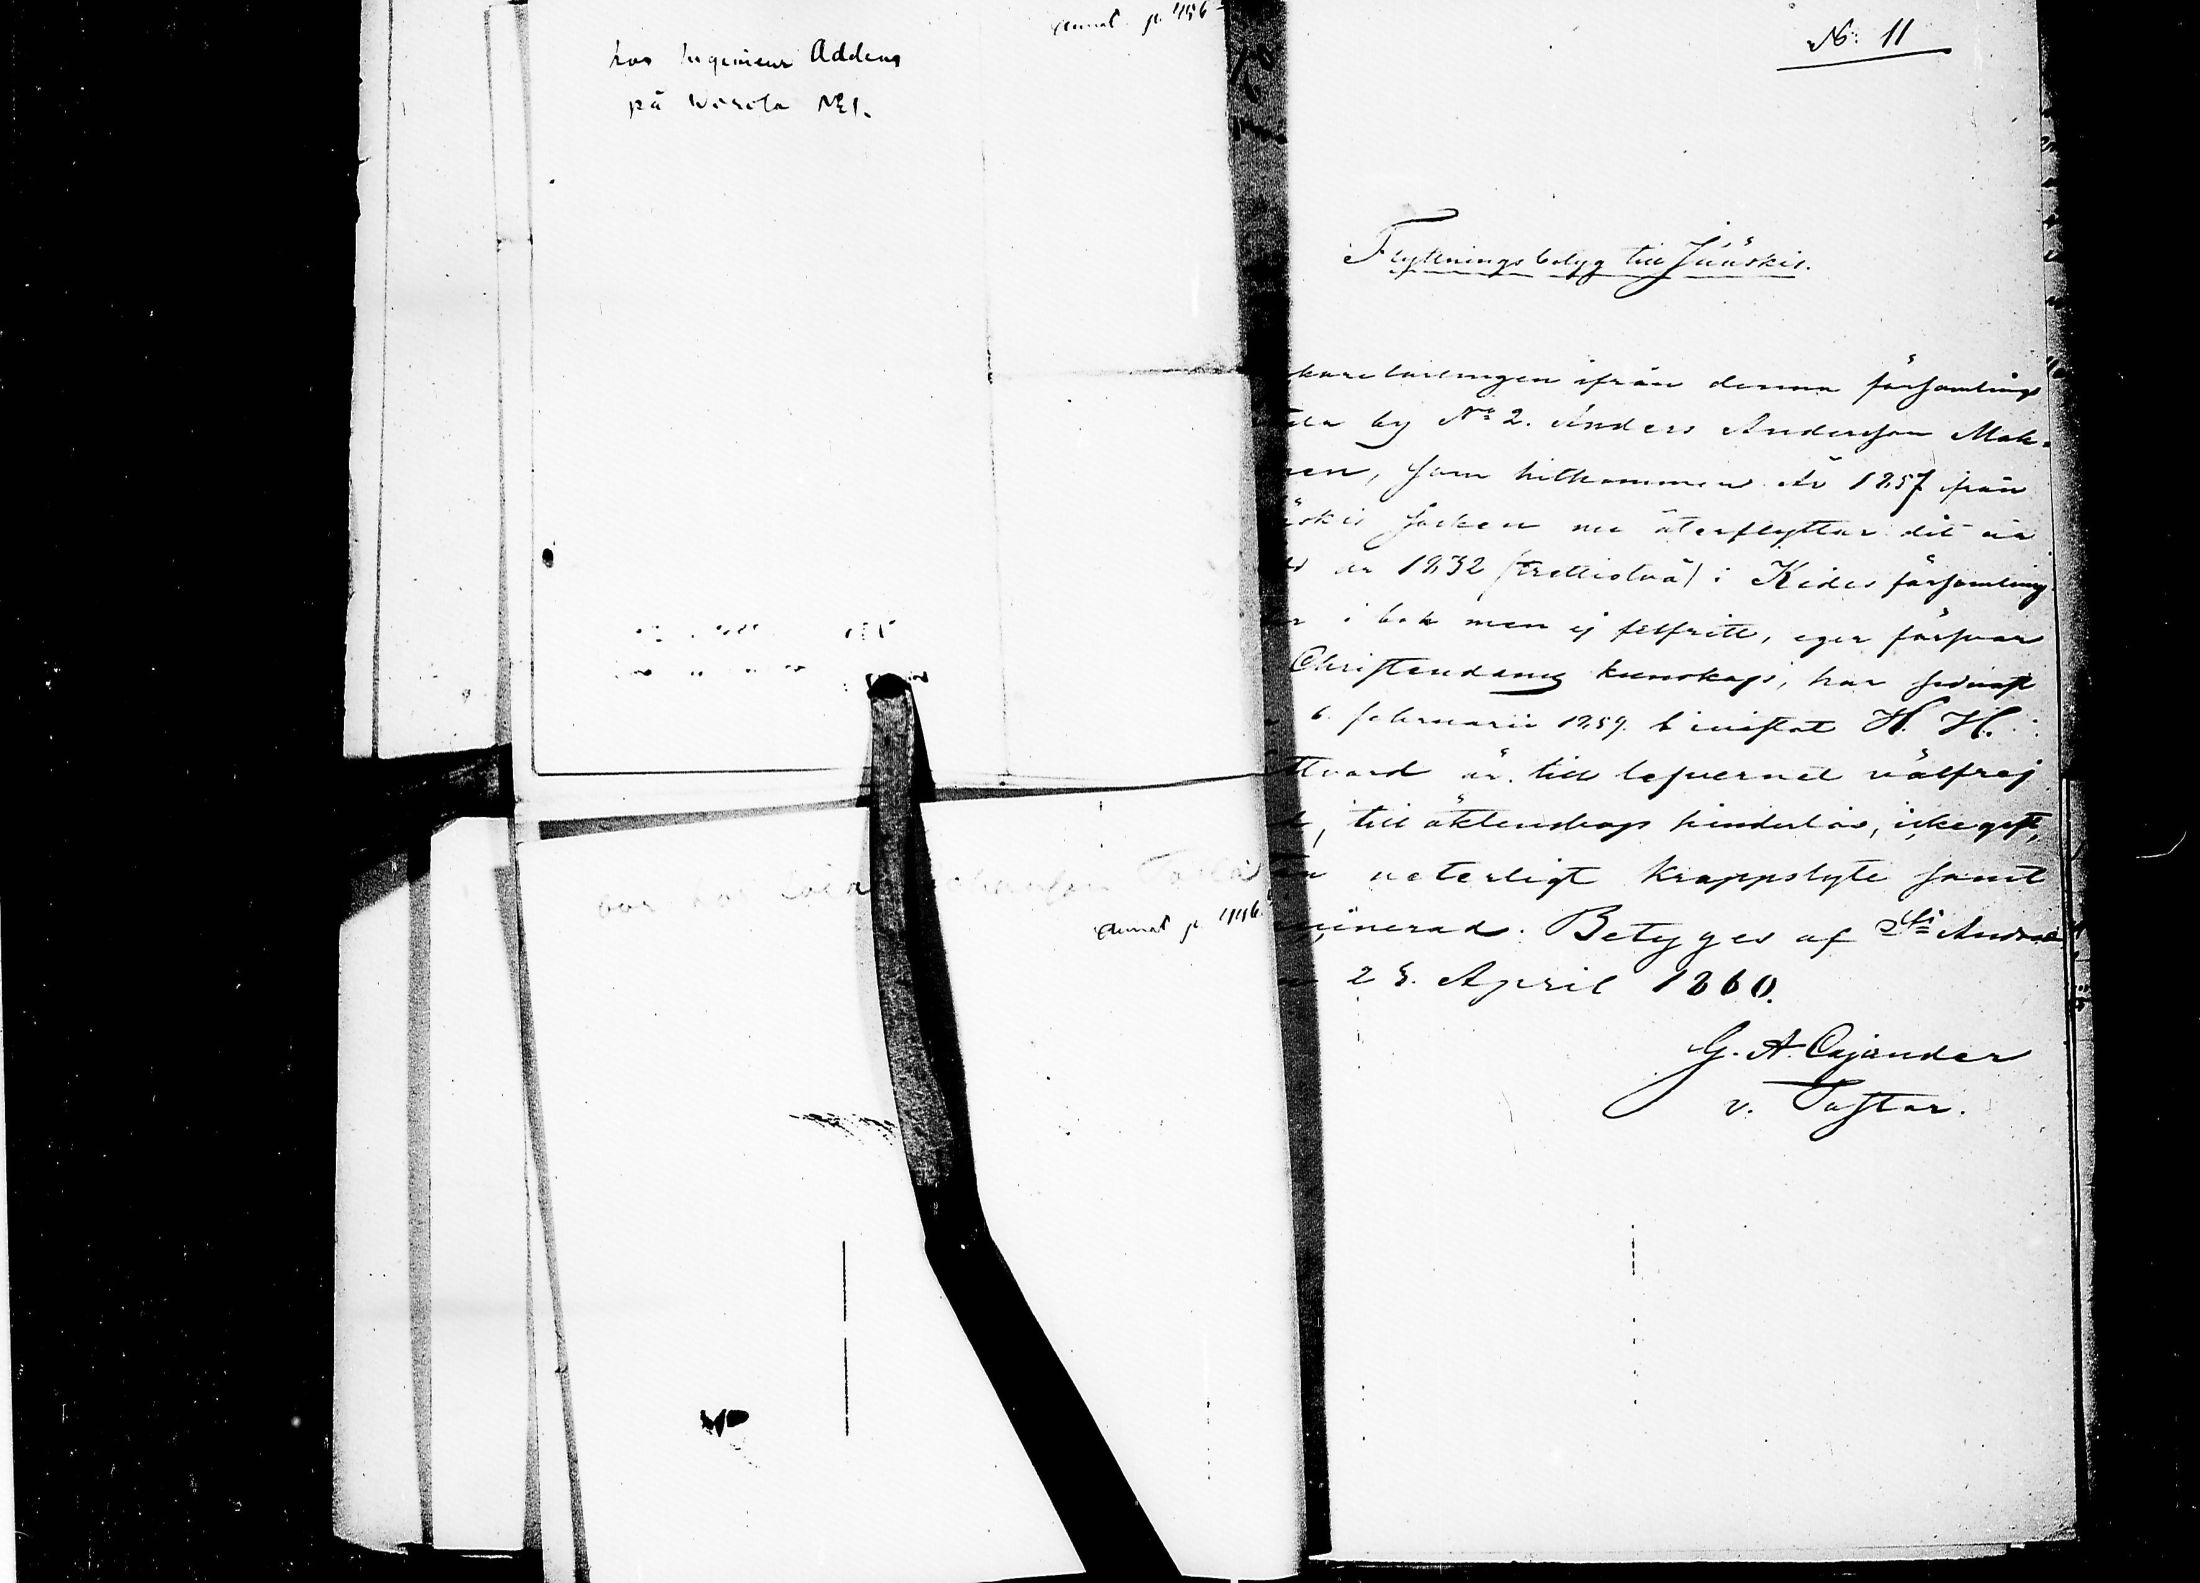 hos Ingenieur Addens
på Worola No 1.
annat p. 456
annat p. 446.
No: 11
Flyttningsbetyg till Jääskis.
karelärlingen ifrån denna församlings
by No 2. Anders Andersson Mak-
nen, som hitkommen År 1857 ifrån
äskis socken nu återflyttar dit är
år 1832 (trettiotvå) i Kides församling
i bok men ej felfritt, eger försvar
Christendoms kunskap, har sednast
6 februarii 1859. bevistat H. H.
ttvard är till lefvernet välfrej
d, till äktenskap hinderlös, icke gift,
veterligt kroppslyte samt
inerad. Betygges af S:ti Andreæ
n 23. April 1860.
G. A. Cajander
v. Pastor.